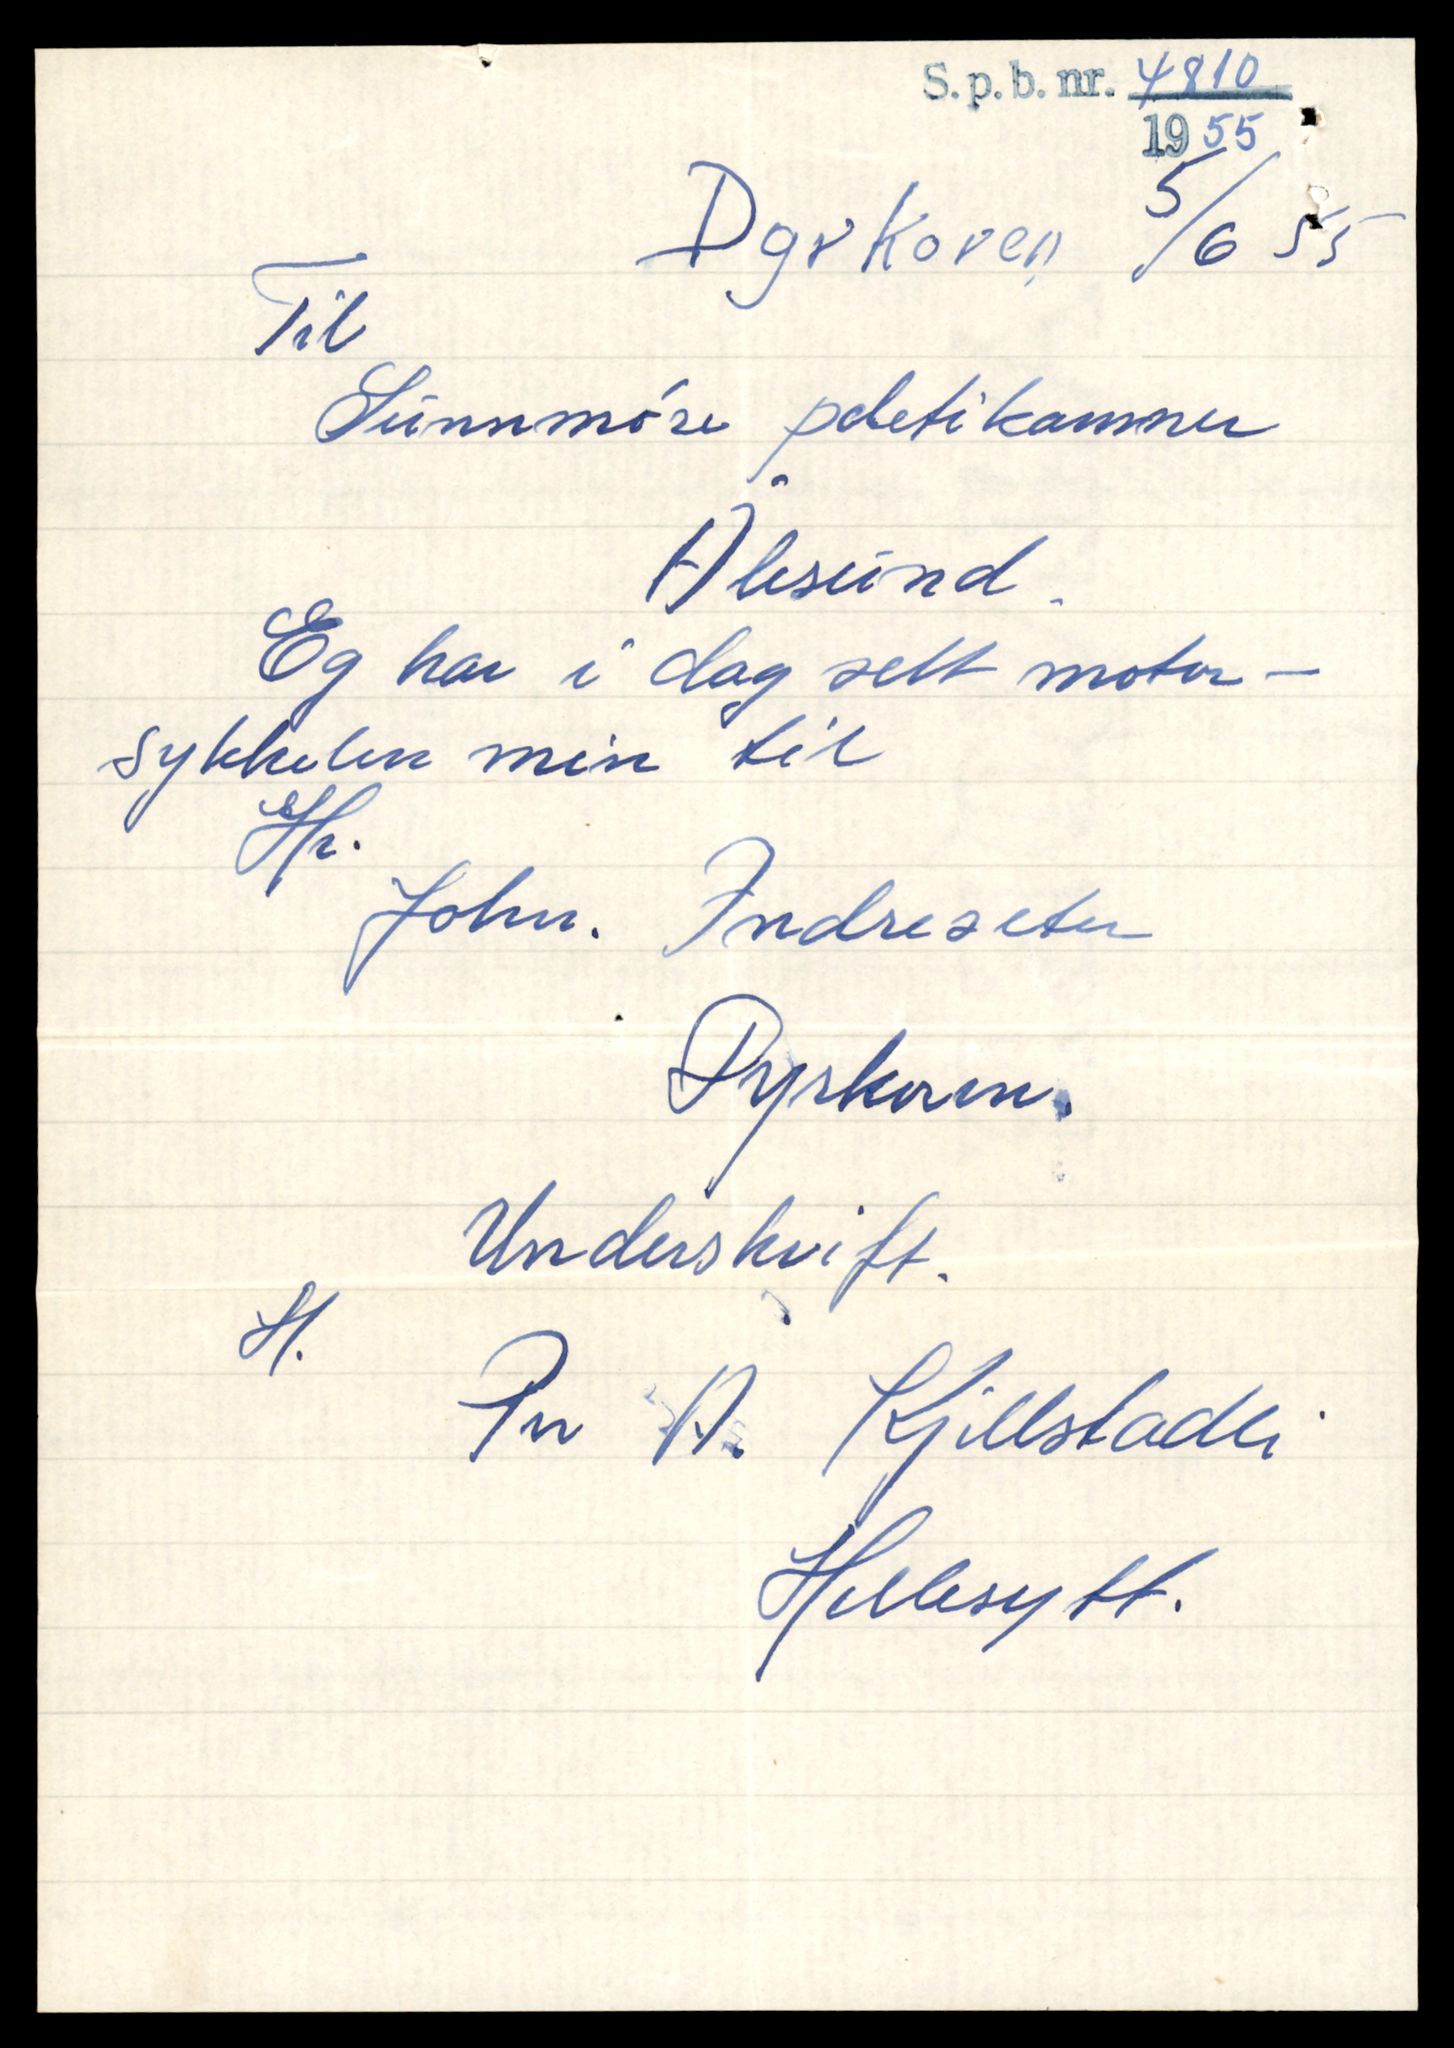 S.p.b. nr. 4810
1955
Dyrkoren 5/6 55
Til
Sunnmöre poletikammer
Ålesund.
Eg har i dag selt motor-
sykkelen min til
Hr.
John. Indreseter
Dyrkorn.
Underskrift.
H.
A. Kjellstadli
Hellesytt.